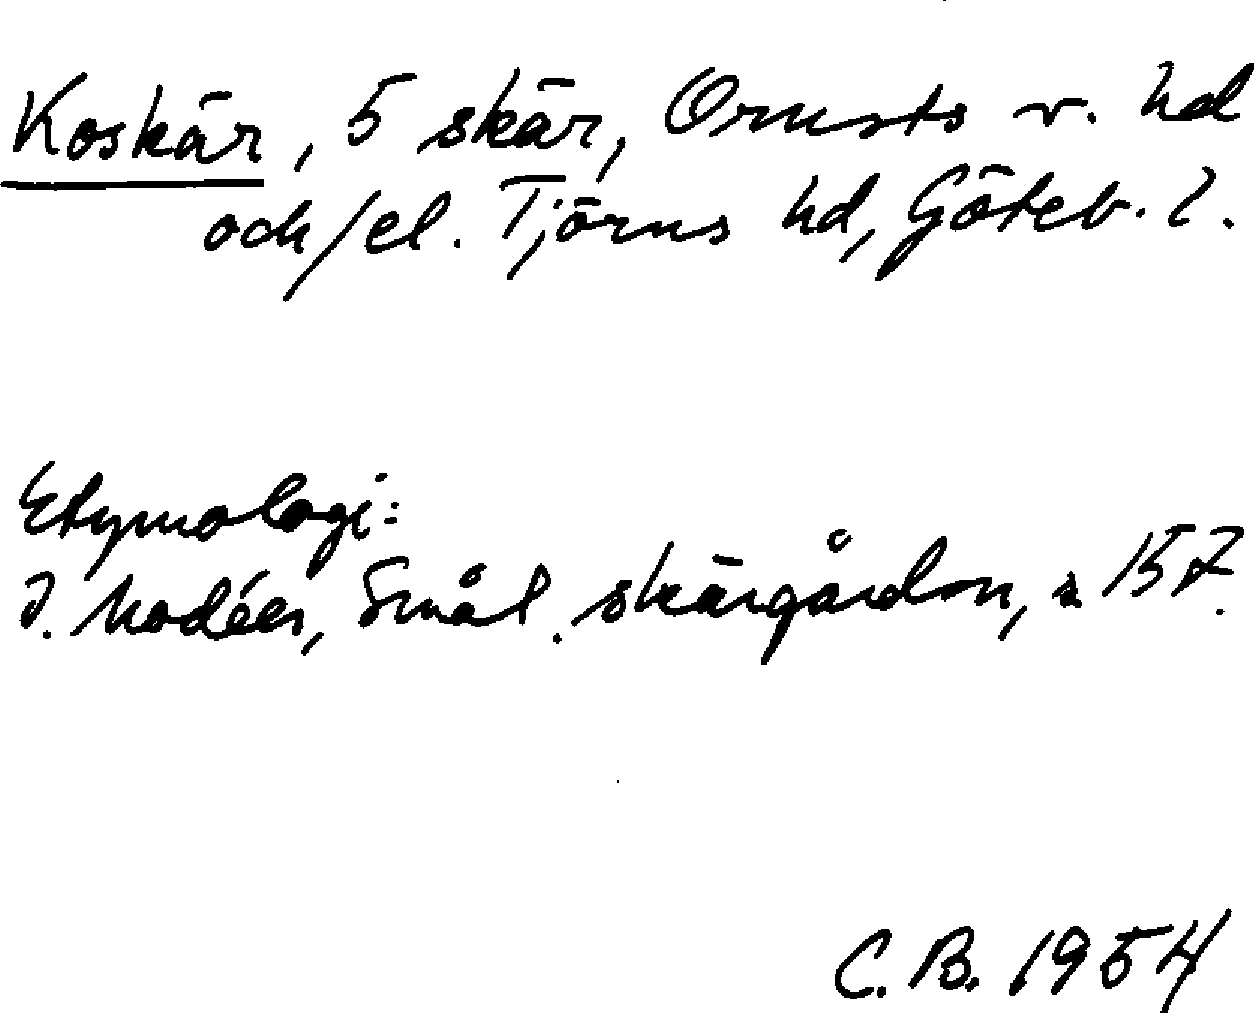 Koskär, 5 skär, Orusts v. hd
och/el. Tjörns hd, Göteb. l.
Etymologi:
I. Modéer, Smål. skärgården, s. 157.
C. B. 1954